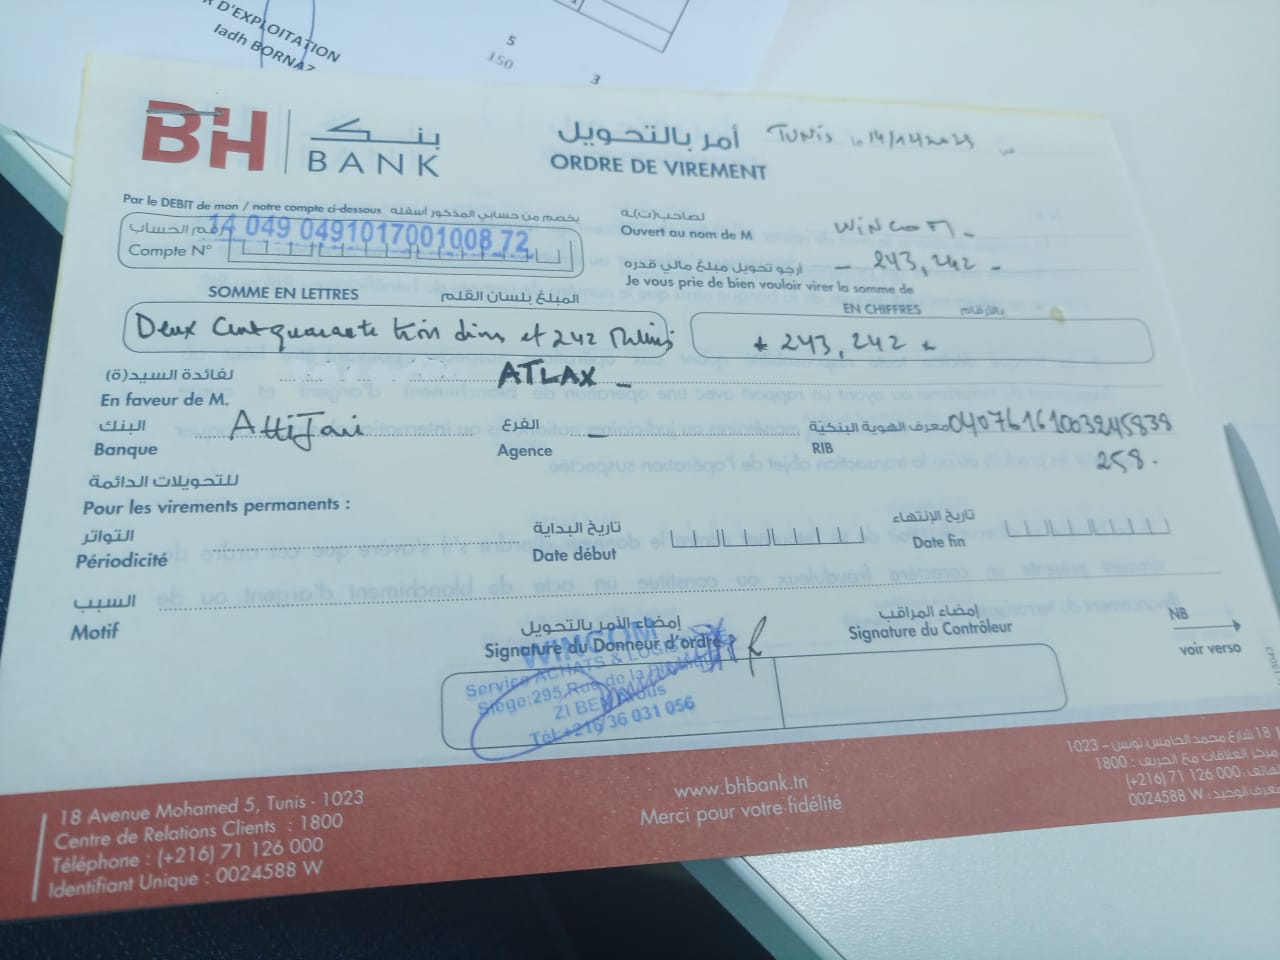 D'EXPLOITATION
Iadh BORNAZ
5
150
3
BH BANK بنك
أمر بالتحويل
ORDRE DE VIREMENT
TUNIS le 14/12/2023
Par le DEBIT de mon / notre compte ci-dessous يخصم من حسابي المذكور أسفله
رقم الحساب
Compte N° 14 049 0491017001008 72
لصاحب(ت)ه
Ouvert au nom de M WINCOM -
أرجو تحويل مبلغ مالي قدره - 243,242 -
Je vous prie de bien vouloir virer la somme de
SOMME EN LETTRES المبلغ بلسان القلم
EN CHIFFRES بالأرقام
Deux Cent quarante trois dinars et 242 Millimes
* 243,242 *
لفائدة السيد(ة)
En faveur de M. ATLAX -
البنك
Banque AttiJari
الفرع
Agence -
معرف الهوية البنكية
RIB 04076161003245838
258.
للتحويلات الدائمة
Pour les virements permanents :
التواتر
Périodicité
تاريخ البداية
Date début
تاريخ الإنتهاء
Date fin
السبب
Motif
إمضاء الآمر بالتحويل
Signature du Donneur d'ordre
إمضاء المراقب
Signature du Contrôleur
NB
voir verso
WINCOM
Service ACHATS & LOGIS
Siège:295 Rue de la
ZI BEN Arous
Tél:+216 36 031 056
18 Avenue Mohamed 5, Tunis - 1023
Centre de Relations Clients : 1800
Téléphone : (+216) 71 126 000
Identifiant Unique : 0024588 W
www.bhbank.tn
Merci pour votre fidélité
18 شارع محمد الخامس تونس – 1023
مركز العلاقات مع الحريف : 1800
الهاتف : 000 126 71 (216+)
المعرف الوحيد : 0024588 W